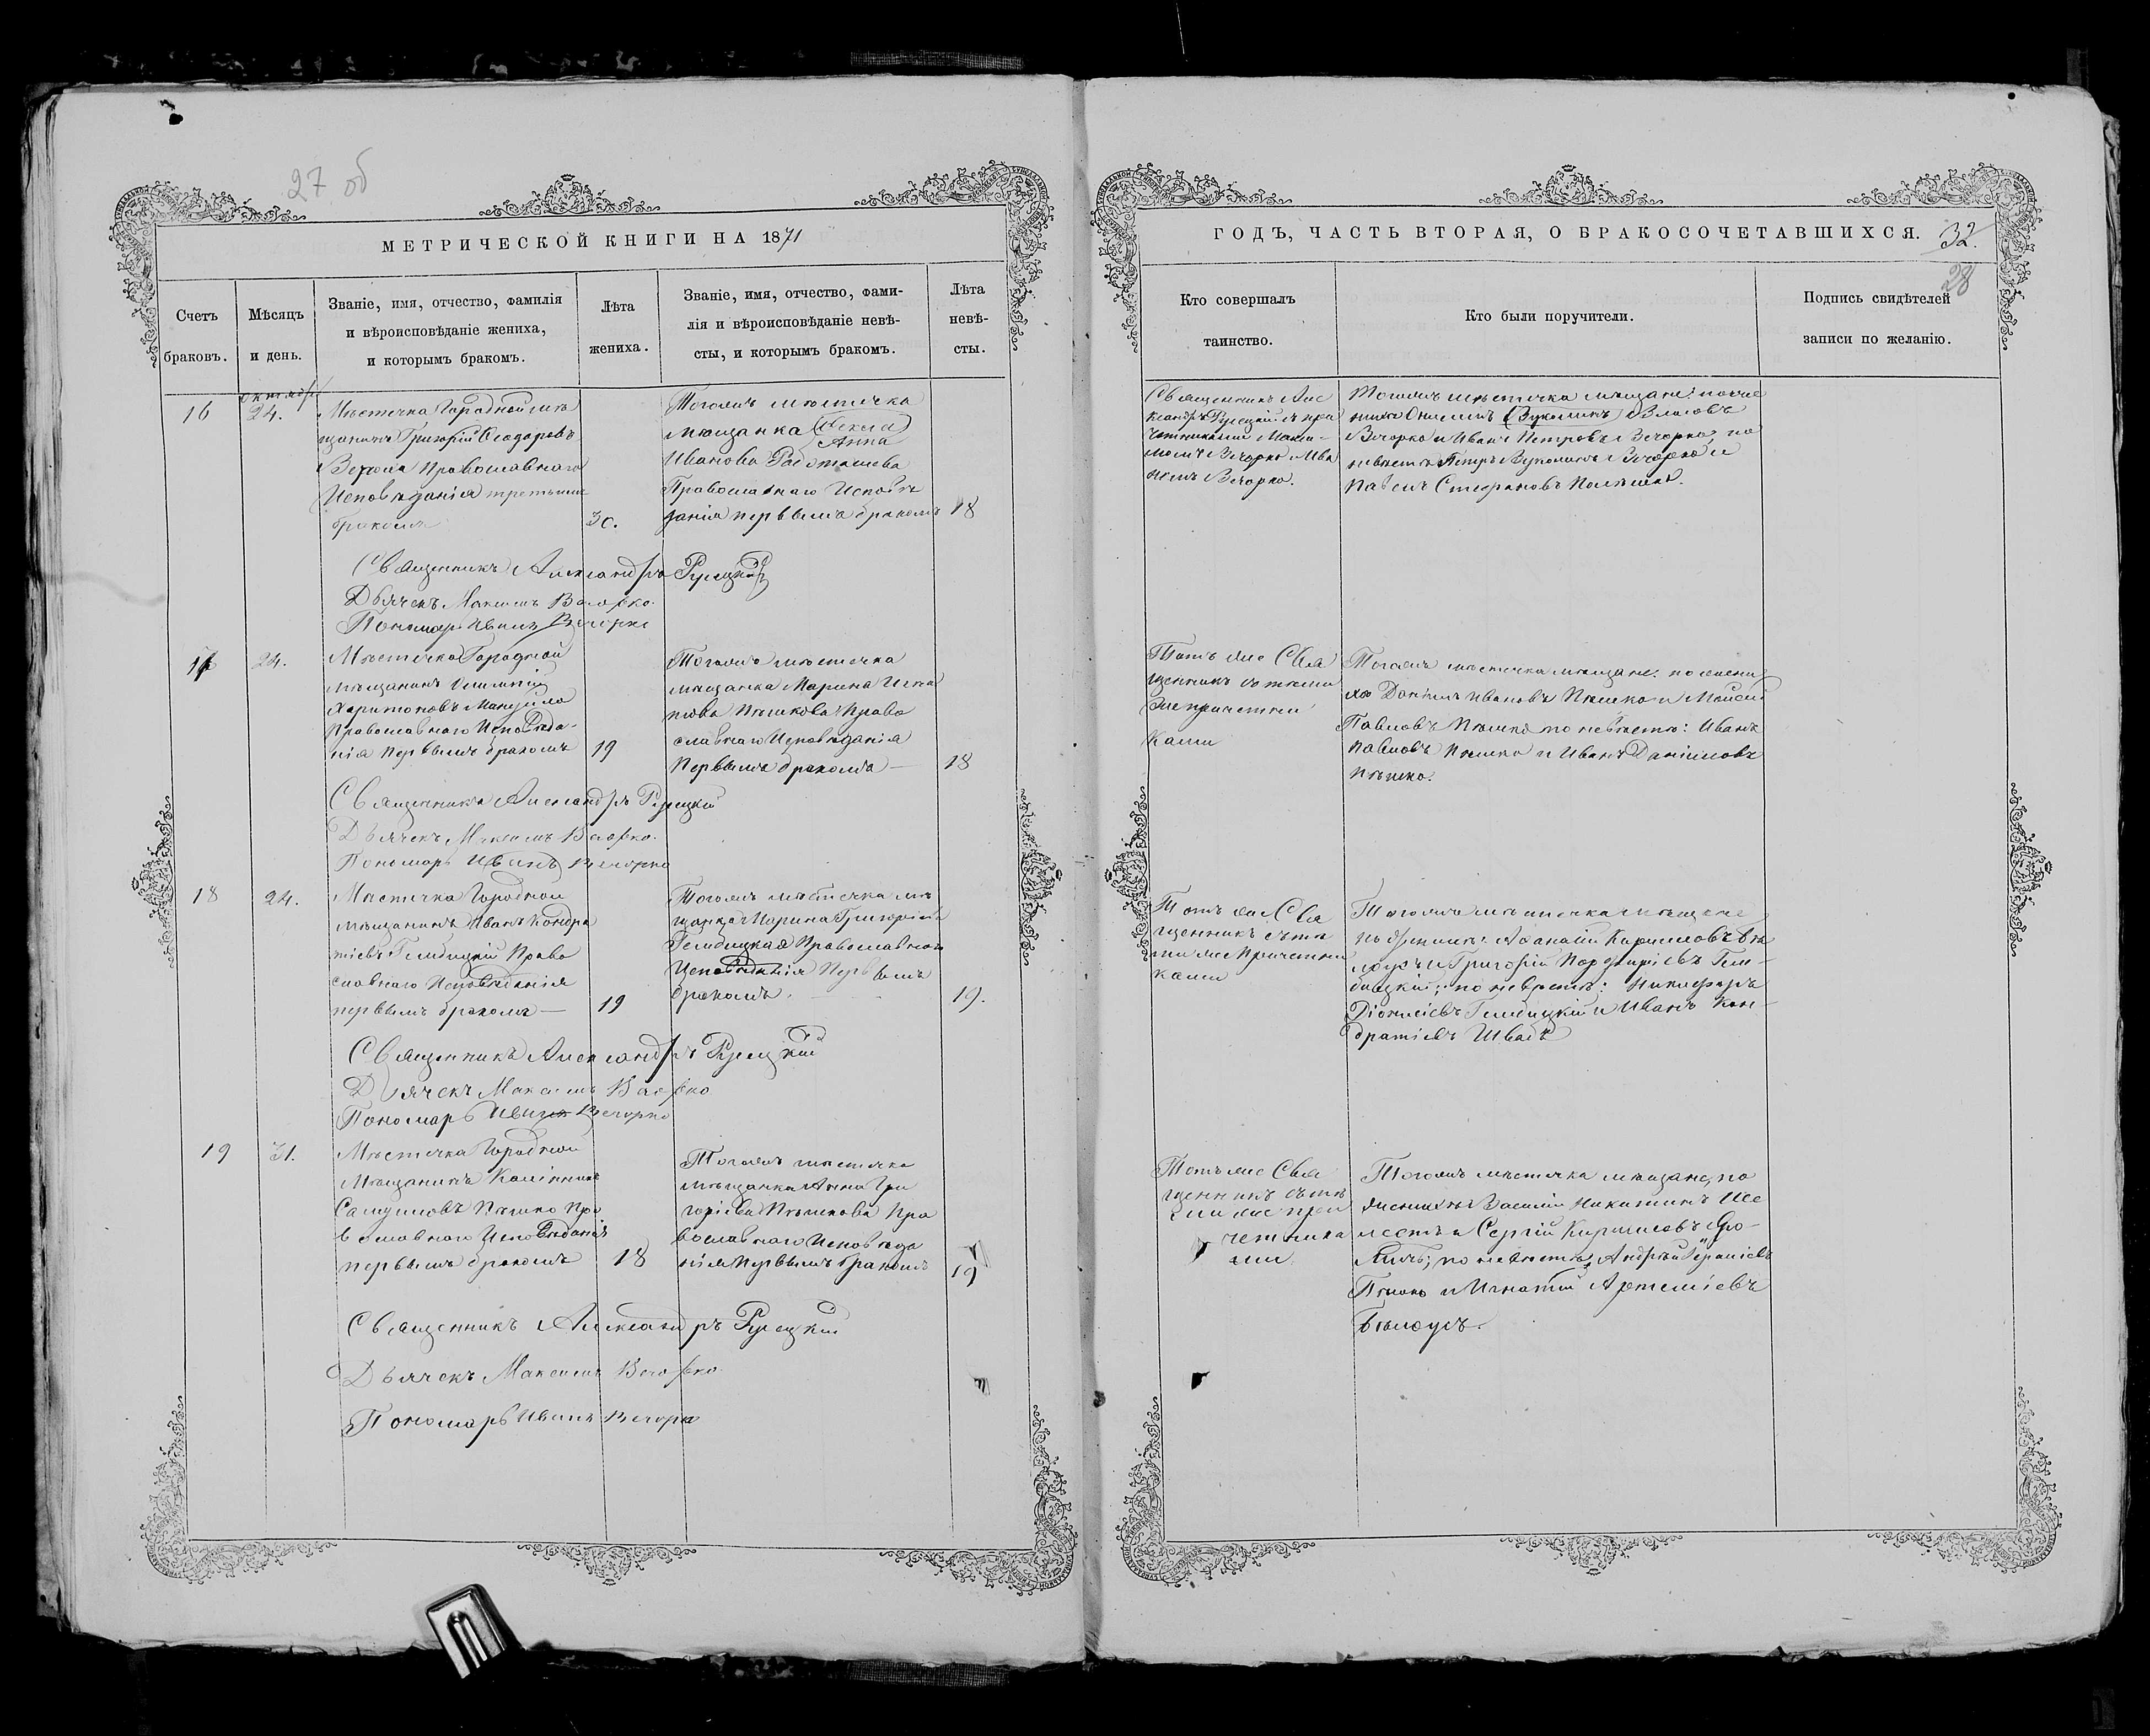 27 об
МЕТРИЧЕСКОЙ КНИГИ НА 1871
Счетъ
браковъ.
Мѣсяцъ
и день.
Званіе, имя, отчество, фамилія
и вѣроисповѣданіе жениха,
и которымъ бракомъ.
Лѣта
жениха.
Званіе, имя, отчество, фами-
лія и вѣроисповѣданіе невѣ-
сты, и которымъ бракомъ.
Лѣта
невѣ-
сты.
16
октября
24.
Мѣстечка Городной мѣ
щанинъ Григорій Ѳеодоровъ
Православнаго
Исповѣданія третьимъ
бракомъ
30.
Тогожъ мѣстечка
мѣщанка
Анна
Иванова
Православнаго Исповѣ
данія первымъ бракомъ
18
Священникъ Александръ Рулецкій
Дьячекъ Максимъ Вечорко.
Пономарь Иванъ Вечорко
17
24.
Мѣстечка Городной
мѣщанинъ
Харитоновъ
Православнаго Исповѣда-
нія первымъ бракомъ
19
Тогожъ мѣстечка
мѣщанка Марина Игна
това Пѣшкова Право
славнаго Исповѣданія
первымъ бракомъ —
18
Священникъ Александръ Рулецкій
Дьячекъ Максимъ Вечорко.
Пономарь Иванъ Вечорко
18
24.
Мѣстечка Городной
мѣщанинъ Иванъ Кондра
тіевъ Гембицкій Право
славнаго Исповѣданія
первымъ бракомъ —
19
Тогожъ мѣстечка мѣ
щанка Марина Григоріева
Гембицкая Православнаго
Исповѣданія Первымъ
бракомъ.
19.
Священникъ Александръ Рулецкій
Дьячекъ Максимъ Вечорко
Пономарь Иванъ Вечорко
19
31.
Мѣстечка Городной
мѣщанинъ
Самуиловъ Пѣшко Пра
вославнаго Исповѣданія
первымъ бракомъ
18
Тогожъ мѣстечка
мѣщанка Анна Гри
горіева Пѣшкова Пра
вославнаго Исповѣда
нія Первымъ бракомъ
19
Священникъ Александръ Рулецкій
Дьячекъ Максимъ Вечорко
Пономарь Иванъ Вечорко
ГОДЪ, ЧАСТЬ ВТОРАЯ, О БРАКОСОЧЕТАВШИХСЯ.
32.
28
Кто совершалъ
таинство.
Кто были поручители.
Подпись свидѣтелей
записи по желанію.
Священникъ Але
ксандръ Рулецкій съ при
четниками Макси-
момъ Вечорко Ива
номъ Вечорко.
Тогожъ мѣстечка мѣщане: по же
ниху
Вечорко и Иванъ Петровъ Вечорко, по
невѣстѣ Петръ Вечорко и
Павелъ Стефановъ
Тотъ же Свя
щенникъ съ тѣми
же причетни
ками
Тогожъ мѣстечка мѣщане: по жени
ху Даніилъ Ивановъ Пѣшко и Моисей
Павловъ Пѣшко по невѣстѣ: Иванъ
Павловъ Пѣшко и Иванъ Даніиловъ
Пѣшко.
Тотъ же Свя
щенникъ съ тѣ
ми же Причетни
ками
Тогожъ мѣстечка мѣщане
по жениху: Афанасій Кирилловъ
и Григорій Порфиріевъ Гем-
бицкій; по невѣстѣ: Никифоръ
Діонисіевъ Гембицкій и Иванъ Кон-
дратіевъ Швадъ
Тотъ же Свя
щенникъ съ тѣ
ми же при
четника
ми
Тогожъ мѣстечка мѣщане, по
жениху Василій Никитинъ Ше
лестъ и Сергій Кирилловъ
по невѣстѣ Андрей
Пѣшко и Игнатій Артеміевъ
Бѣлоусъ.